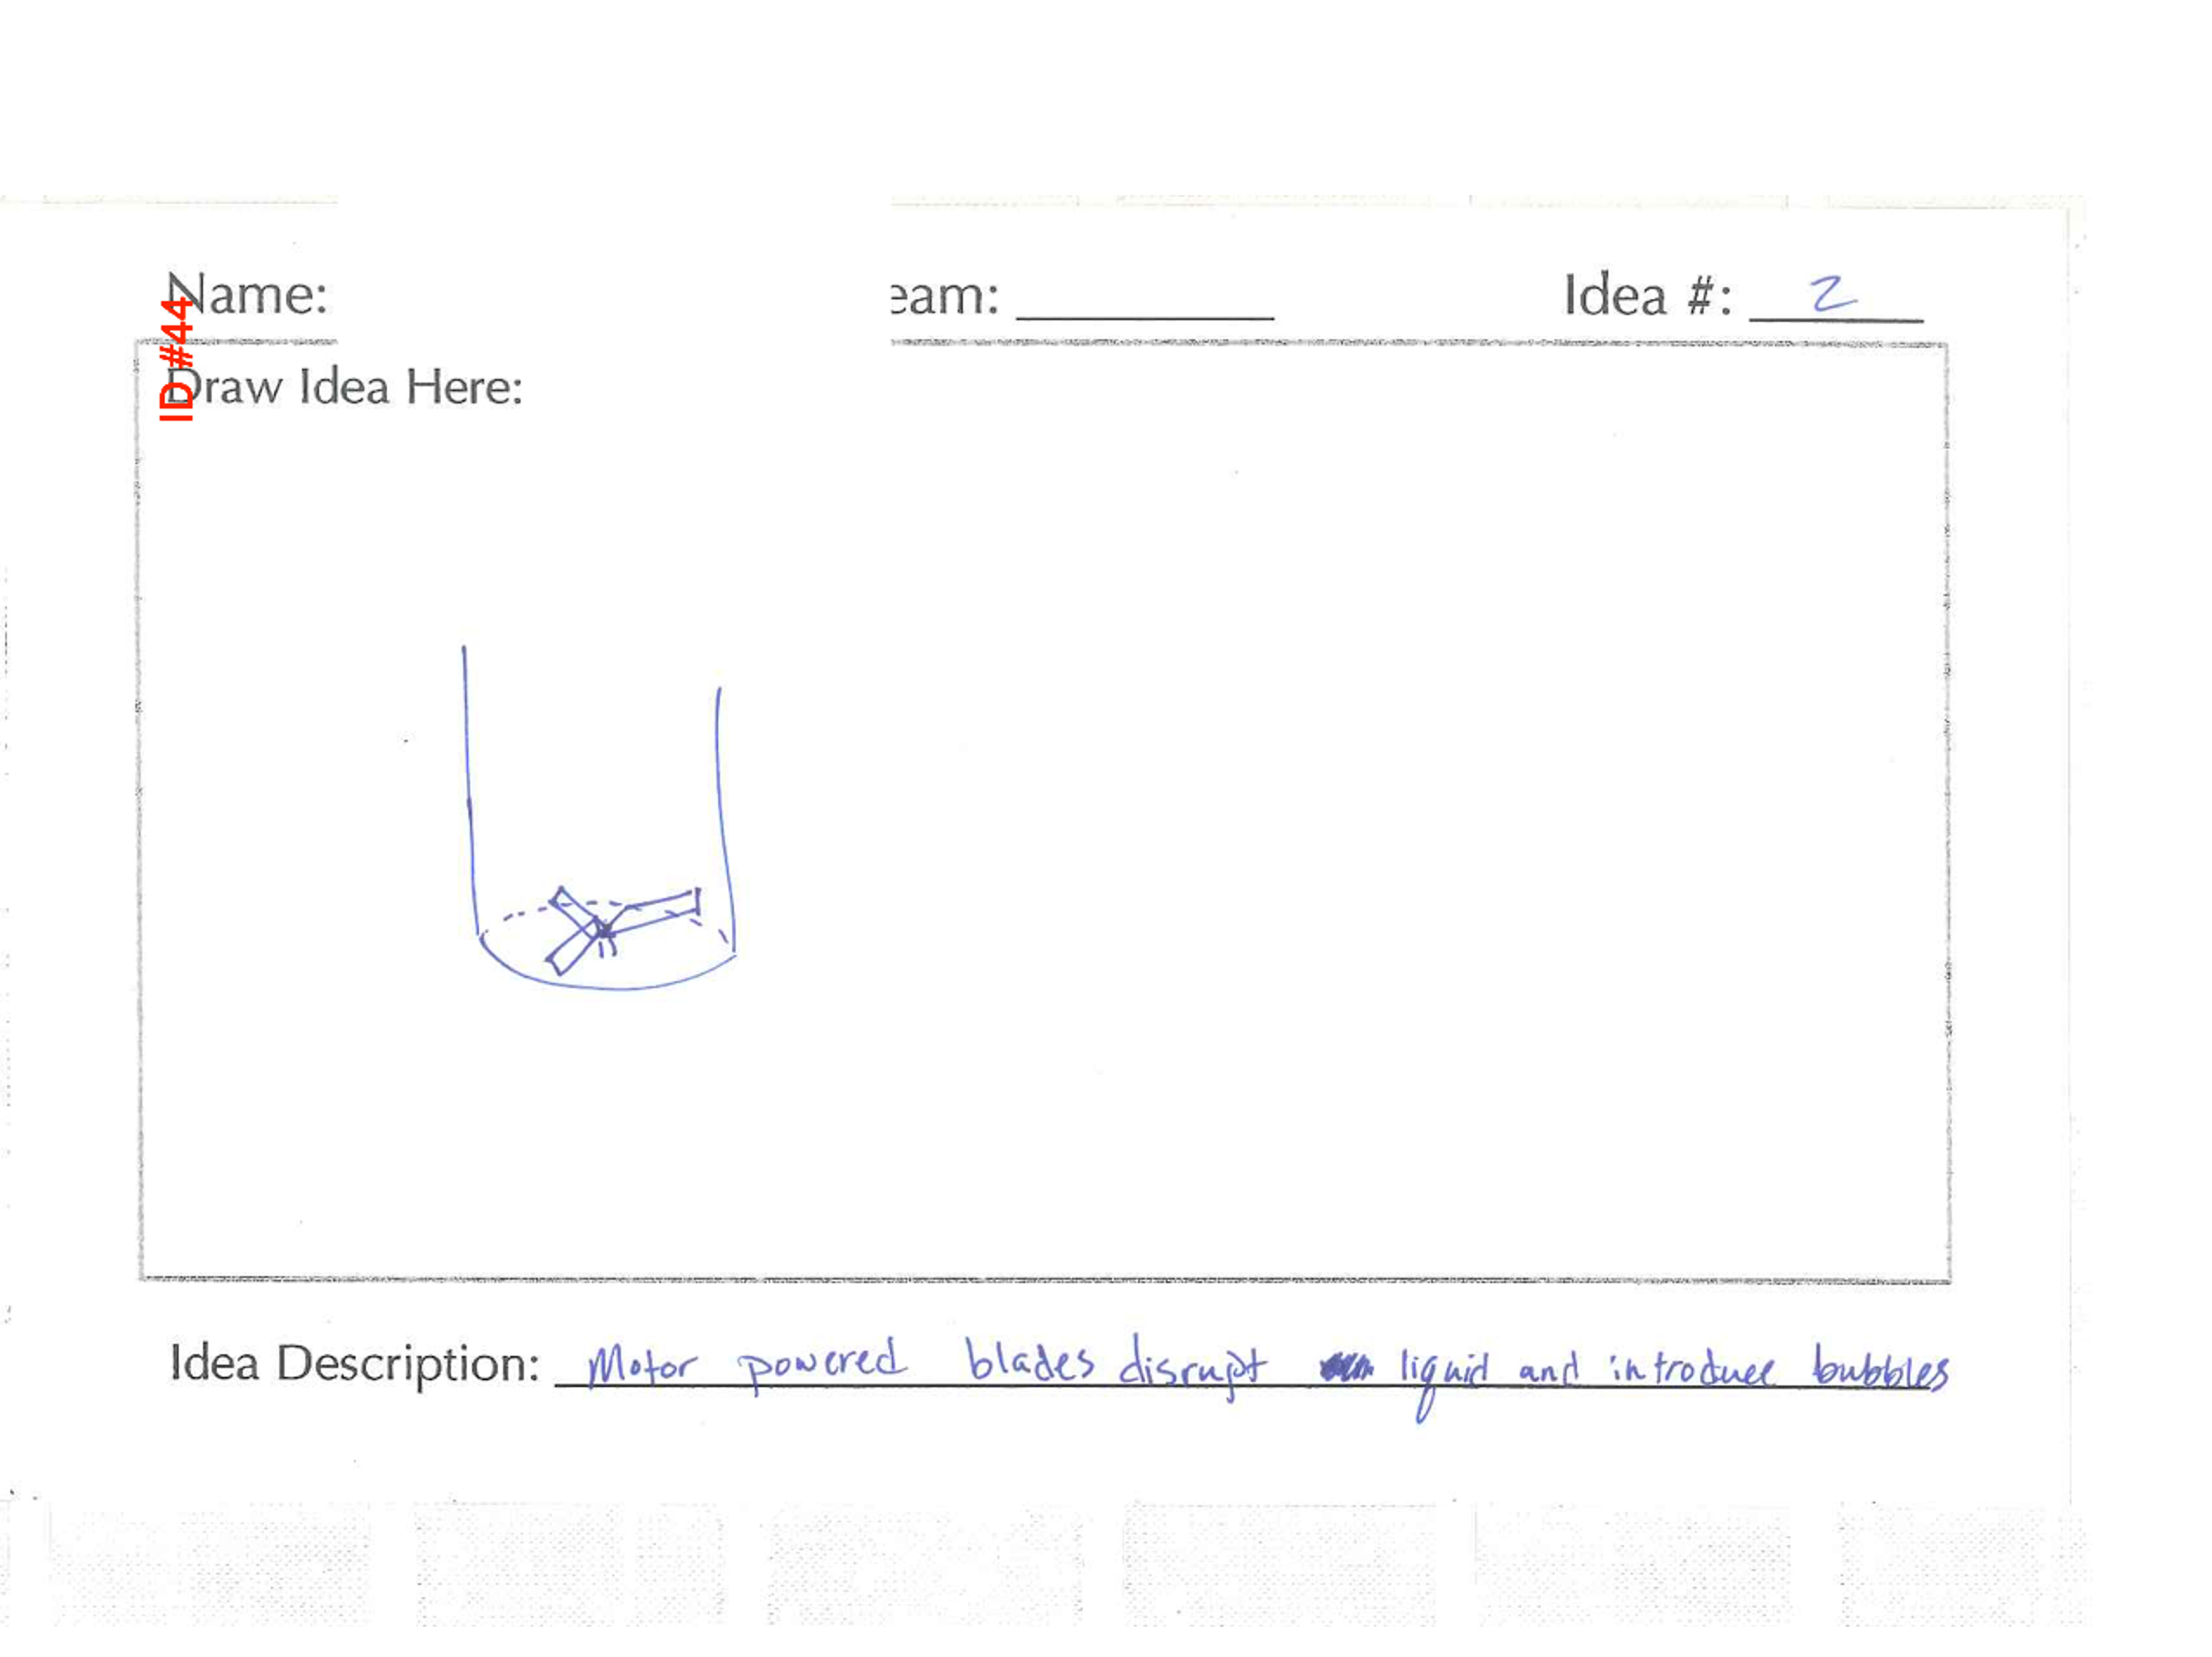 Name: eam: Idea #: 2
ID#44
Draw Idea Here:
Idea Description: Motor powered blades disrupt liquid and introduce bubbles